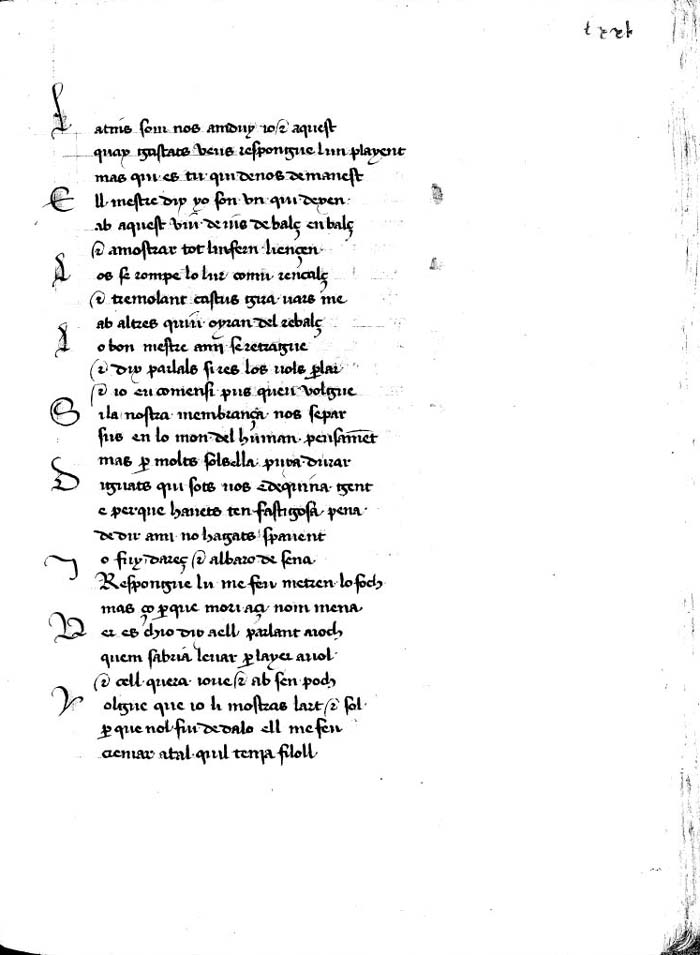 lxxi
Latins som nos amduy io ⁊ aquest
quax gastats veus respongue lun playent
mas qui es tu qui denos demanest
Ell mestre dix yo son vn qui dexen
ab aquest viu de riis de balç en balç
⁊ amostrar tot linfern liençen
Los se rompe lo lur comu rencalç
⁊ tremolant castus gira vars me
ab altres quiu oyran del rebalç
Lo bon mestre ami se retrague
⁊ dix parlals si res los vols plar
⁊ io eu comensi pus queu volgue
Si la nostra membrança nos separ
sus en lo mon del human pensament
mas p molts sols ella puxa durar
Diguats qui sots nos e dequina gent
e perque hauets ten fastigosa pena
de dir ami no hagats spauent
Io fuy dareç ⁊ albaro de sena
Respongue lu me feu metren lo foch
mas ço pque mori aci nom mena
Ver es chio dix aell parlant a ioch
quem sabria leuar p layer a vol
⁊ cell quera ioue ⁊ ab sen poch
Volgue que io li mostras lart ⁊ sol
pque nol fiu dedalo ell me feu
cremar atal quil tenia filoll